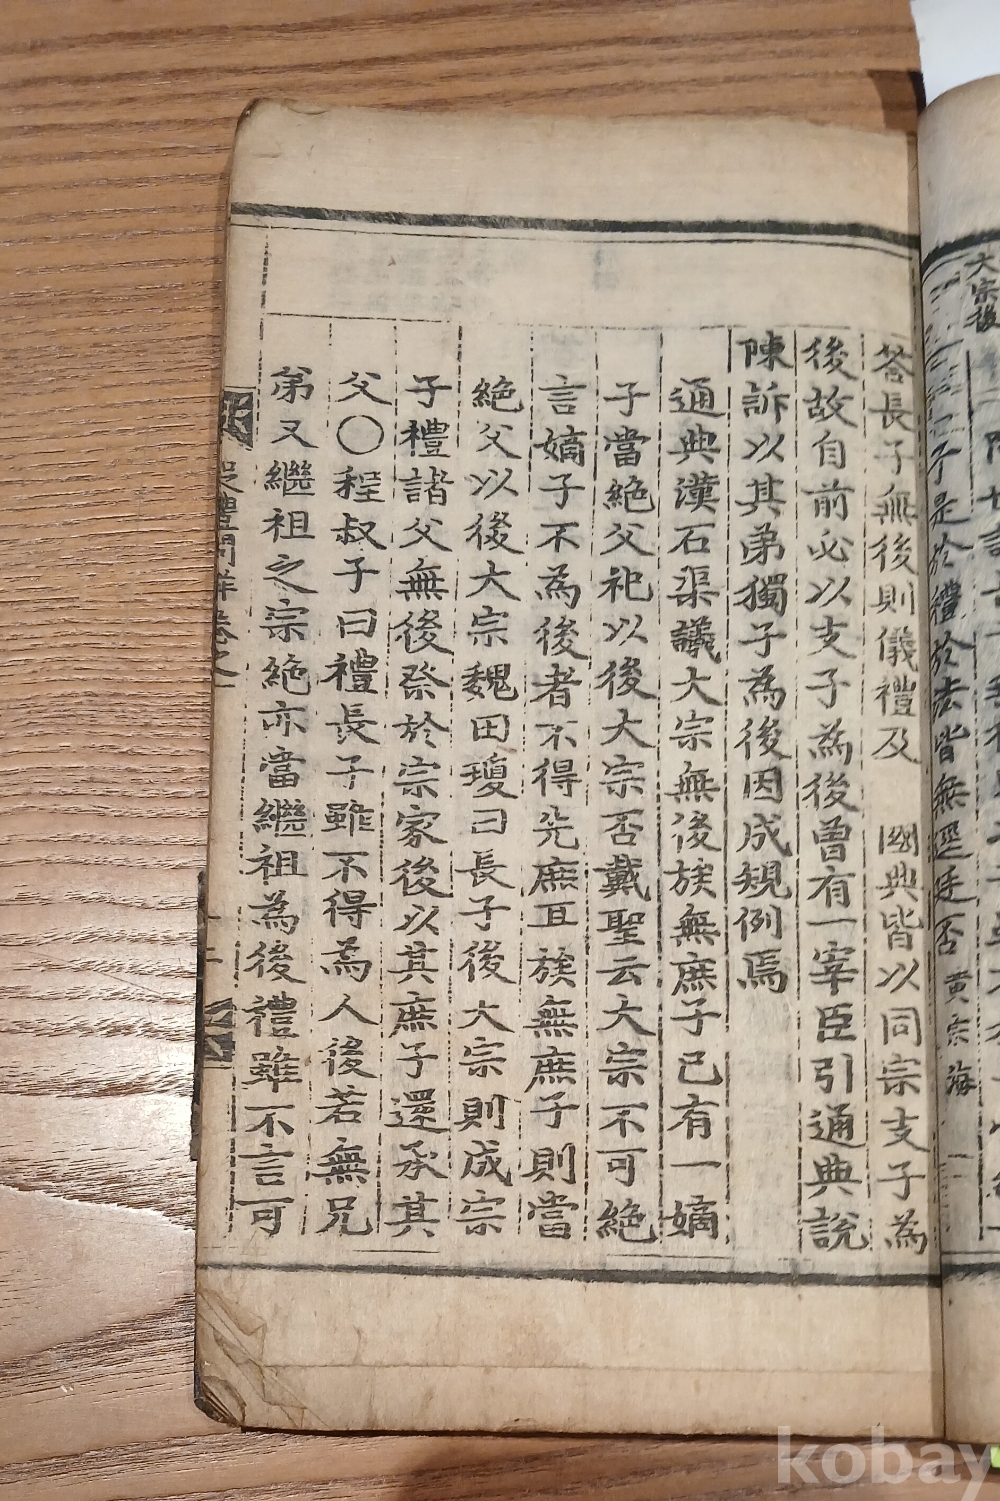 大宗後
子是於禮於法皆無逕廷否 黄宗海
荅長子無後則儀禮及 國典皆以同宗支子為
後故自前必以支子為後曾有一宰臣引通典說
陳訴以其弟獨子為後因成規例焉
通典漢石渠議大宗無後族無庶子已有一嫡
子當絶父祀以後大宗否戴聖云大宗不可絶
言嫡子不為後者不得先庶耳族無庶子則當
絶父以後大宗魏田瓊曰長子後大宗則成宗
子禮諸父無後祭於宗家後以其庶子還承其
父〇程叔子曰禮長子雖不得為人後若無兄
弟又繼祖之宗絶亦當繼祖為後禮雖不言可
疑禮問解卷之一
kobay